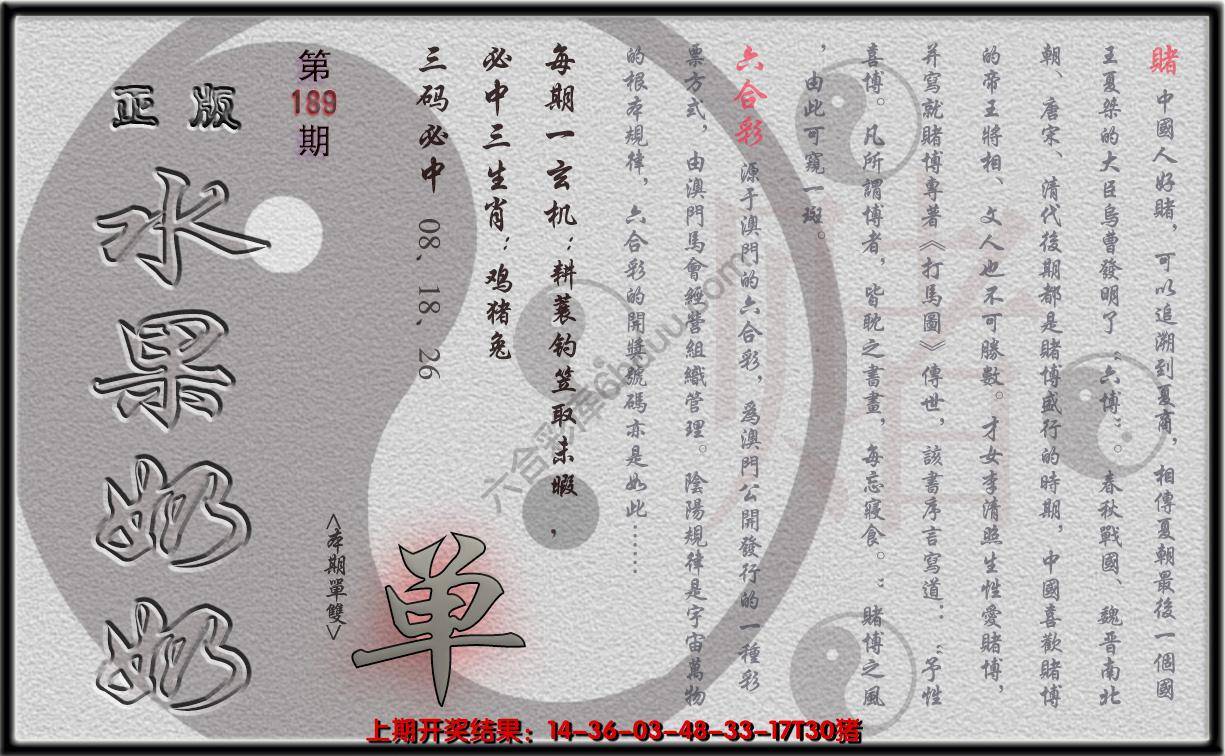 賭 中國人好賭，可以追溯到夏商，相傳夏朝最後一個國
王夏桀的大臣烏曹發明了“六博”。春秋戰國、魏晋南北
朝、唐宋、清代後期都是賭博盛行的時期，中國喜歡賭博
的帝王將相、文人也不可勝數。才女李清照生性愛賭博，
并寫就賭博專著《打馬圖》傳世，該書序言寫道：“予性
喜博。凡所謂博者，皆耽之書畫，每忘寢食。”賭博之風
，由此可窺一斑。
六合彩 源于澳門的六合彩，爲澳門公開發行的一種彩
票方式，由澳門馬會經營組織管理。陰陽規律是宇宙萬物
的根本規律，六合彩的開獎號碼亦是如此……
每期一玄机：耕蓑钓笠取未暇，
必中三生肖：鸡猪兔
三码必中 08、18、26
第189期
正版
水果奶奶
<本期單雙>
单
六合彩库6hduu.com
上期开奖结果：14-36-03-48-33-17T30猪